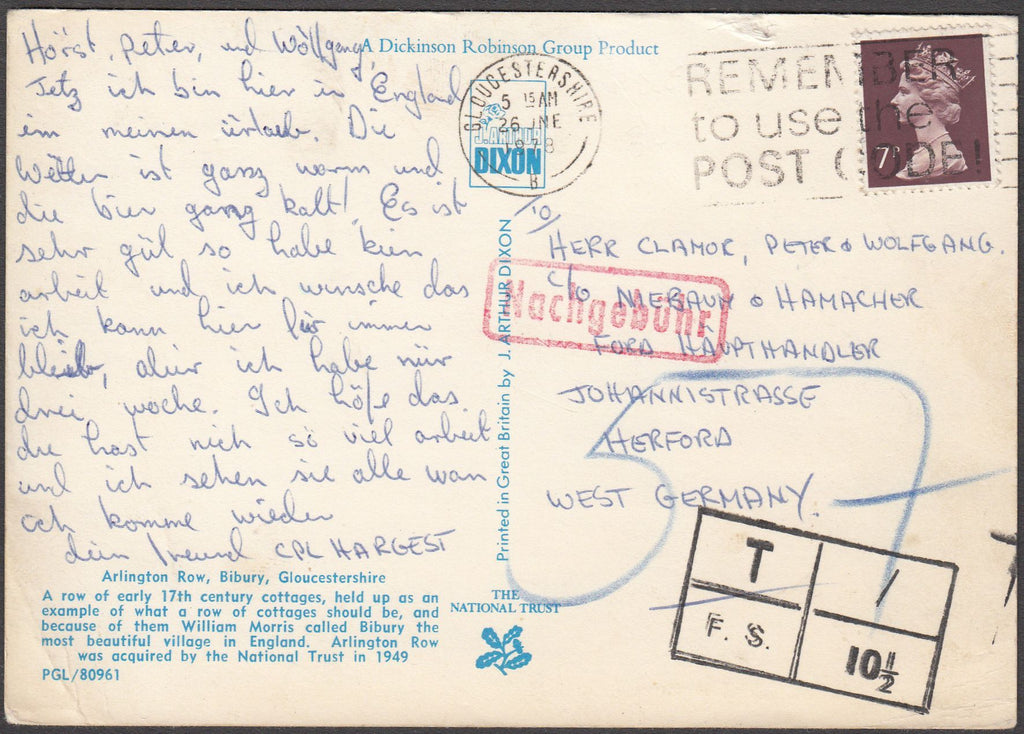 Hörst, Peter, und Wölfgang,
Jetz ich bin hier in England
im meinen ürlaub. Die
Wetter ist ganz warm und
die bier ganz kalt! Es ist
sehr gül so habe kien
arbeit und ich wunsche das
ich kann hier für immer
bleib, aber ich habe nür
drei woche. Ich höfe das
du hast nich sö viel arbeit
und ich sehen sie alle wan
ich komme wieder
dein freund CPL HARGEST
Arlington Row, Bibury, Gloucestershire
A row of early 17th century cottages, held up as an
example of what a row of cottages should be, and
because of them William Morris called Bibury the
most beautiful village in England. Arlington Row
was acquired by the National Trust in 1949
PGL/80961
A Dickinson Robinson Group Product
J. ARTHUR
DIXON
GLOUCESTERSHIRE
5 15 AM
26 JNE
1978
B
REMEMBER
to use the
POST CODE!
7
Printed in Great Britain by J. ARTHUR DIXON
THE
NATIONAL TRUST
10/
HERR CLAMOR, PETER & WOLFGANG.
c/o NIEBAUM & HAMACHER
FORD HAUPTHANDLER
JOHANNISTRASSE
HERFORD
WEST GERMANY.
Nachgebühr
57
T /
F. S. 10½